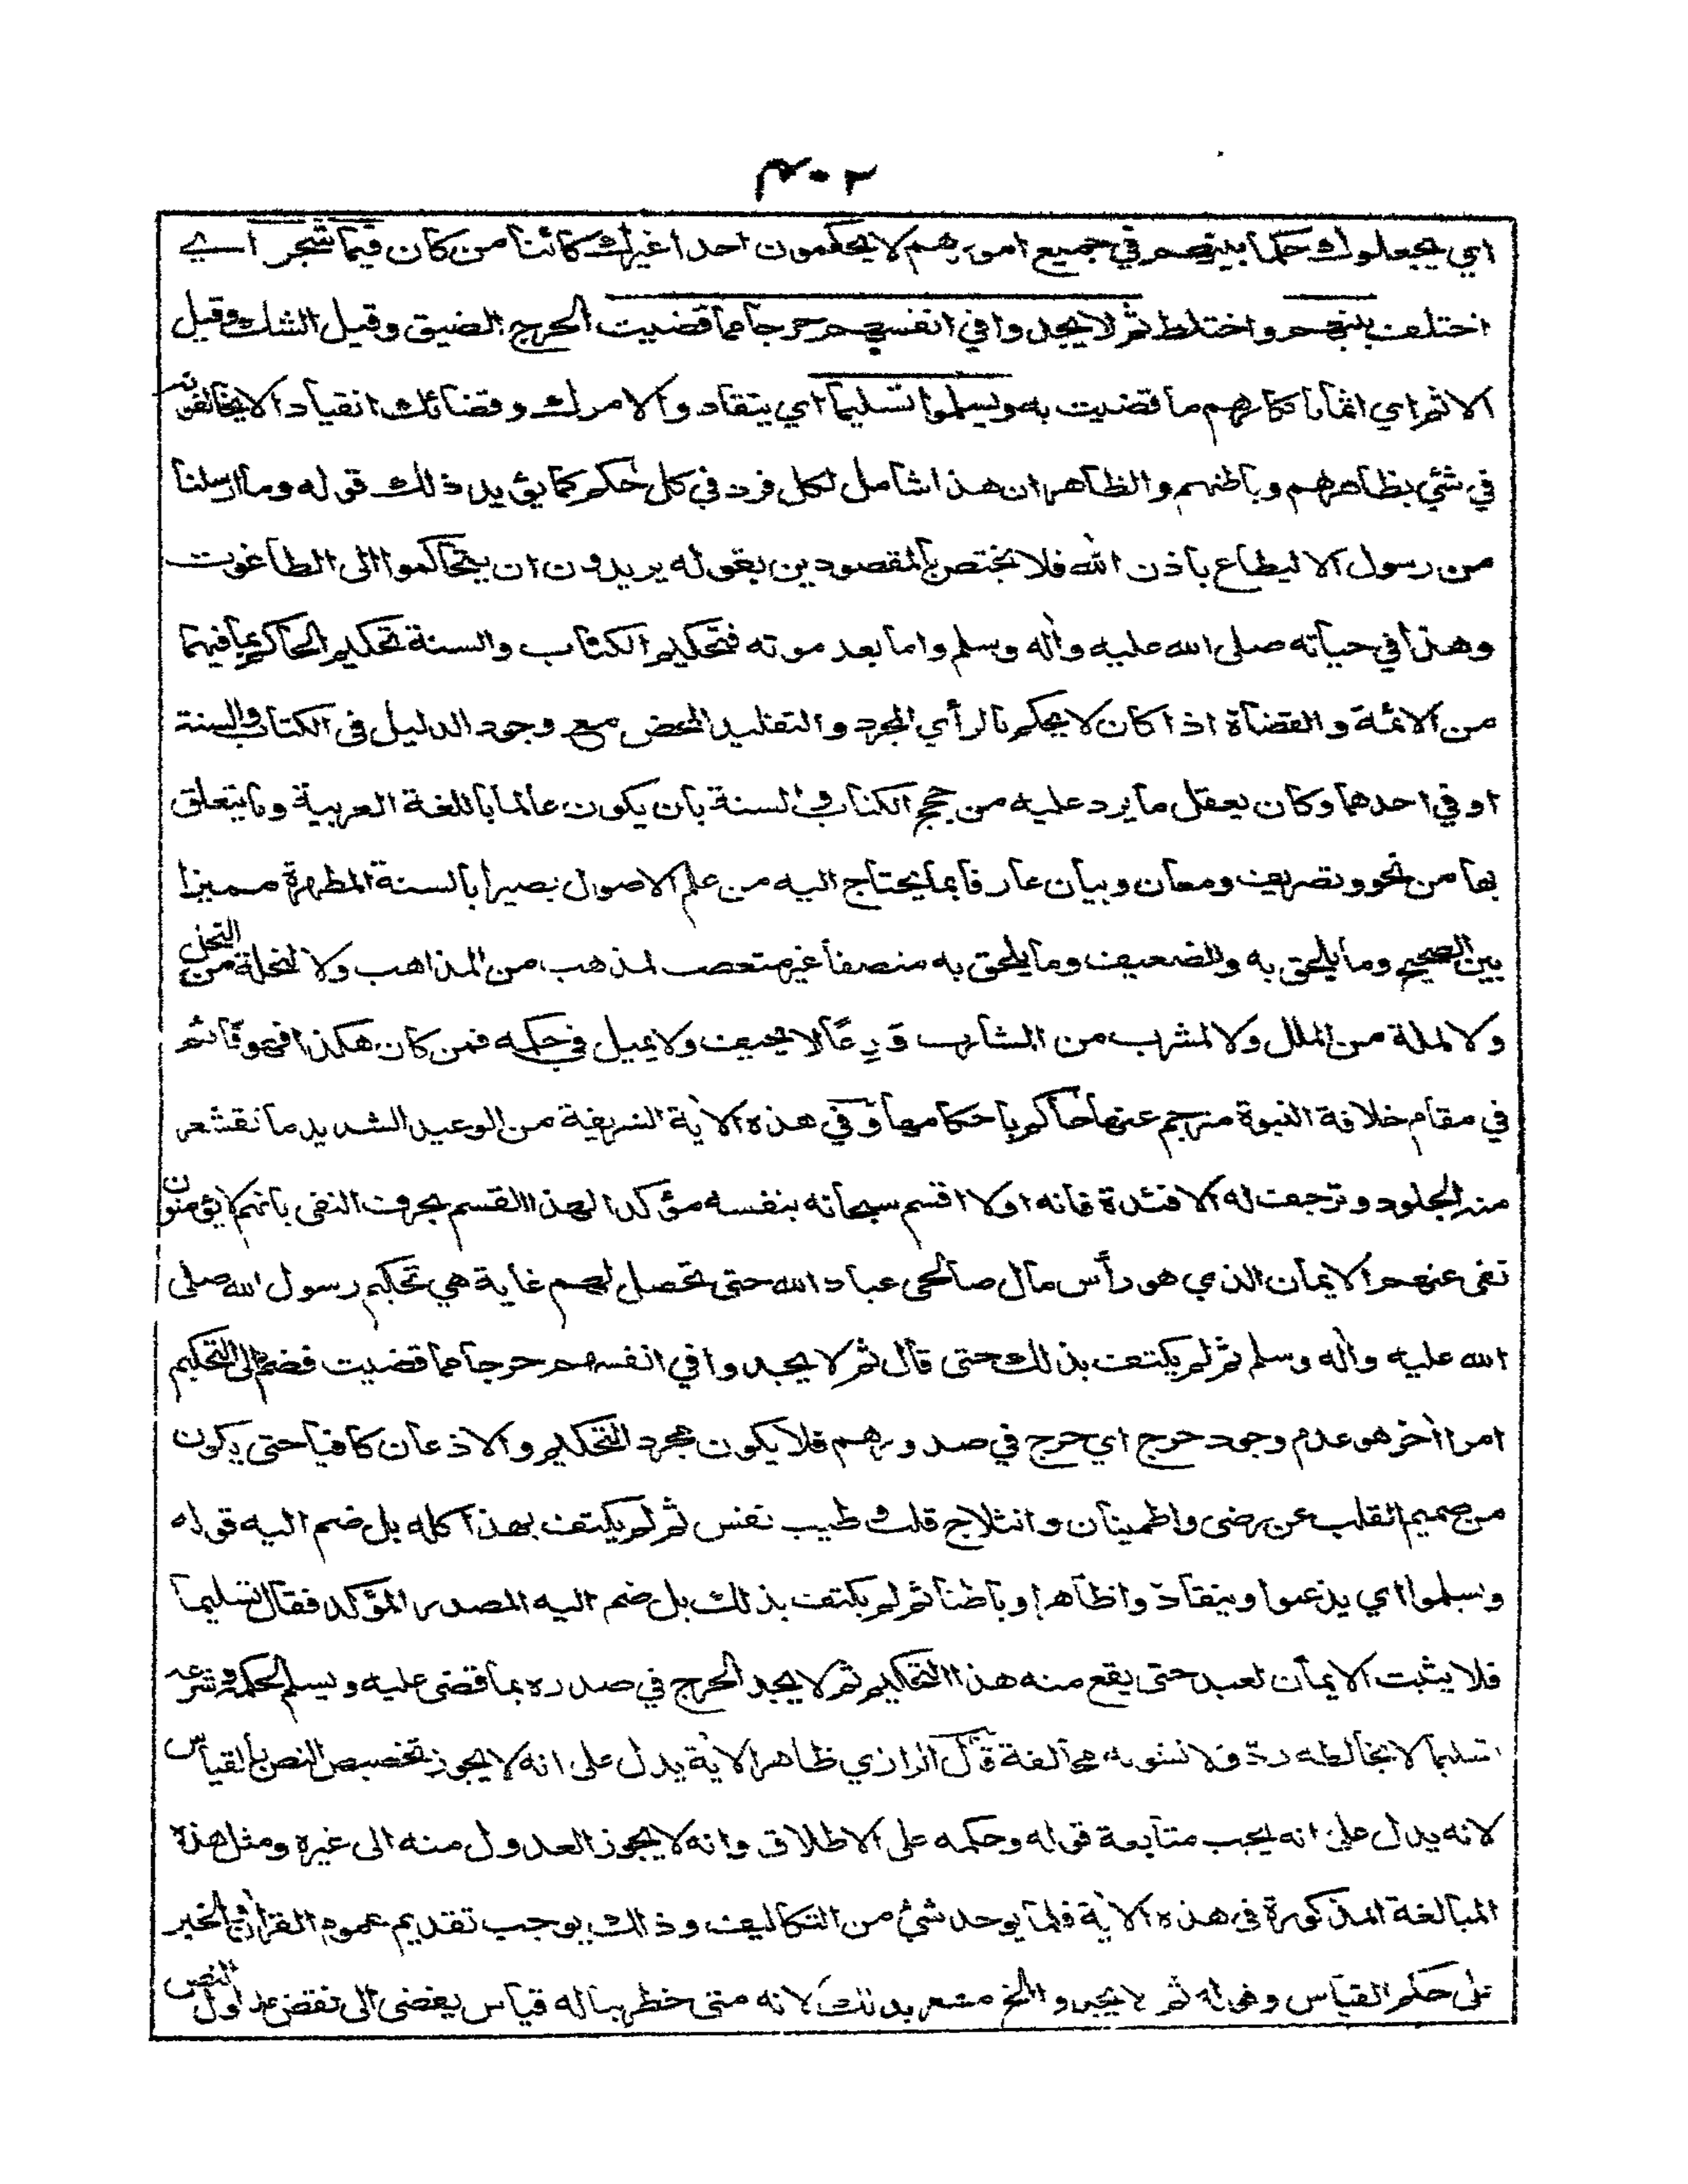 ۴۰۲
اي يجعلوك حكما بينهم في جميع امورهم لا يحكمون احدا غيرك كائنا من كان فيما شجر اے
اختلف بينهم واختلط ثم لا يجدوا في انفسهم حرجا مما قضيت الحرج الضيق وقيل الشك وقيل
الاثم اي اثما بانكارهم ما قضيت به ويسلموا تسليما اي ينقادوا لامرك وقضائك انقيادا لا يخالفونه
في شئ بظاهرهم وباطنهم والظاهر ان هذا شامل لكل فرد في كل حكم كما يؤيد ذلك قوله وما ارسلنا
من رسول الا ليطاع باذن الله فلا يختص بالمقصودين بقوله يريدون ان يتحاكموا الى الطاغوت
وهذا في حياته صلى الله عليه وأله وسلم واما بعد موته فتحكيم الكتاب والسنة تحكيم الحاكم بما فيهما
من الائمة والقضاة اذا كان لا يحكم بالرأي المجرد والتقليد المحض مع وجود الدليل في الكتاب والسنة
او في احدهما وكان يعقل ما يرد عليه من حجج الكتاب والسنة بان يكون عالما باللغة العربية وما يتعلق
بها من نحو وتصريف ومعان وبيان عارفا بما يحتاج اليه من علم الاصول بصيرا بالسنة المطهرة مميزا
بين الصحيح وما يلحق به والضعيف وما يلحق به منصفا غير متعصب لمذهب من المذاهب ولا لنحلة من النحل
ولا لملة من الملل ولا لمشرب من المشارب وَرِعًا لا يحيف ولا يميل في حكمه فمن كان هكذا فهو قائم
في مقام خلافة النبوة مترجم عنها حاكم باحكامها وفي هذه الاية الشريفة من الوعيد الشديد ما تقشعر
منه الجلود وترجف له الافئدة فانه اولا اقسم سبحانه بنفسه مؤكدا لهذا القسم بحرف النفي بانهم لا يؤمنون
نفى عنهم الايمان الذي هو رأس مال صالحى عباد الله حتى تحصل لهم غاية هي تحكيم رسول الله صلى
الله عليه وأله وسلم ثم لم يكتف بذلك حتى قال ثم لا يجدوا في انفسهم حرجا مما قضيت فضم الى التحكيم
امرا أخر هو عدم وجود حرج اي حرج في صدورهم فلا يكون مجرد التحكيم والاذعان كافيا حتى يكون
من صميم القلب عن رضى واطمينان وانثلاج قلب وطيب نفس ثم لم يكتف بهذا كله بل ضم اليه قوله
ويسلموا اي يذعنوا وينقادوا ظاهرا وباطنا ثم لم يكتف بذلك بل ضم اليه المصدر المؤكد فقال تسليما
فلا يثبت الايمان لعبد حتى يقع منه هذا التحكيم ثم لا يجد الحرج في صدره بما قضى عليه ويسلم لحكمه وشرعه
تسليما لا يخالطه ردّ ولا تشوبه مخالفة قال الرازي ظاهر الأية يدل على انه لا يجوز تخصيص النص بالقياس
لانه يدل على انه يجب متابعة قوله وحكمه على الاطلاق وانه لا يجوز العدول منه الى غيره ومثل هذه
المبالغة المذكورة في هذه الأية قلما يوجد شئ من التكاليف وذلك يوجب تقديم عموم القرأن والخبر
على حكم القياس وقوله ثم لا يجدوا الخ مشعر بذلك لانه متى خطر بباله قياس يفضى الى نقض مدلول النص